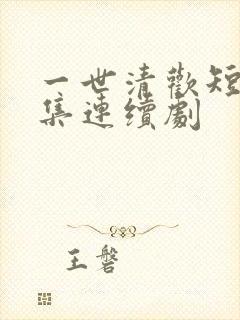 一世清歡短
集連續劇
王磐